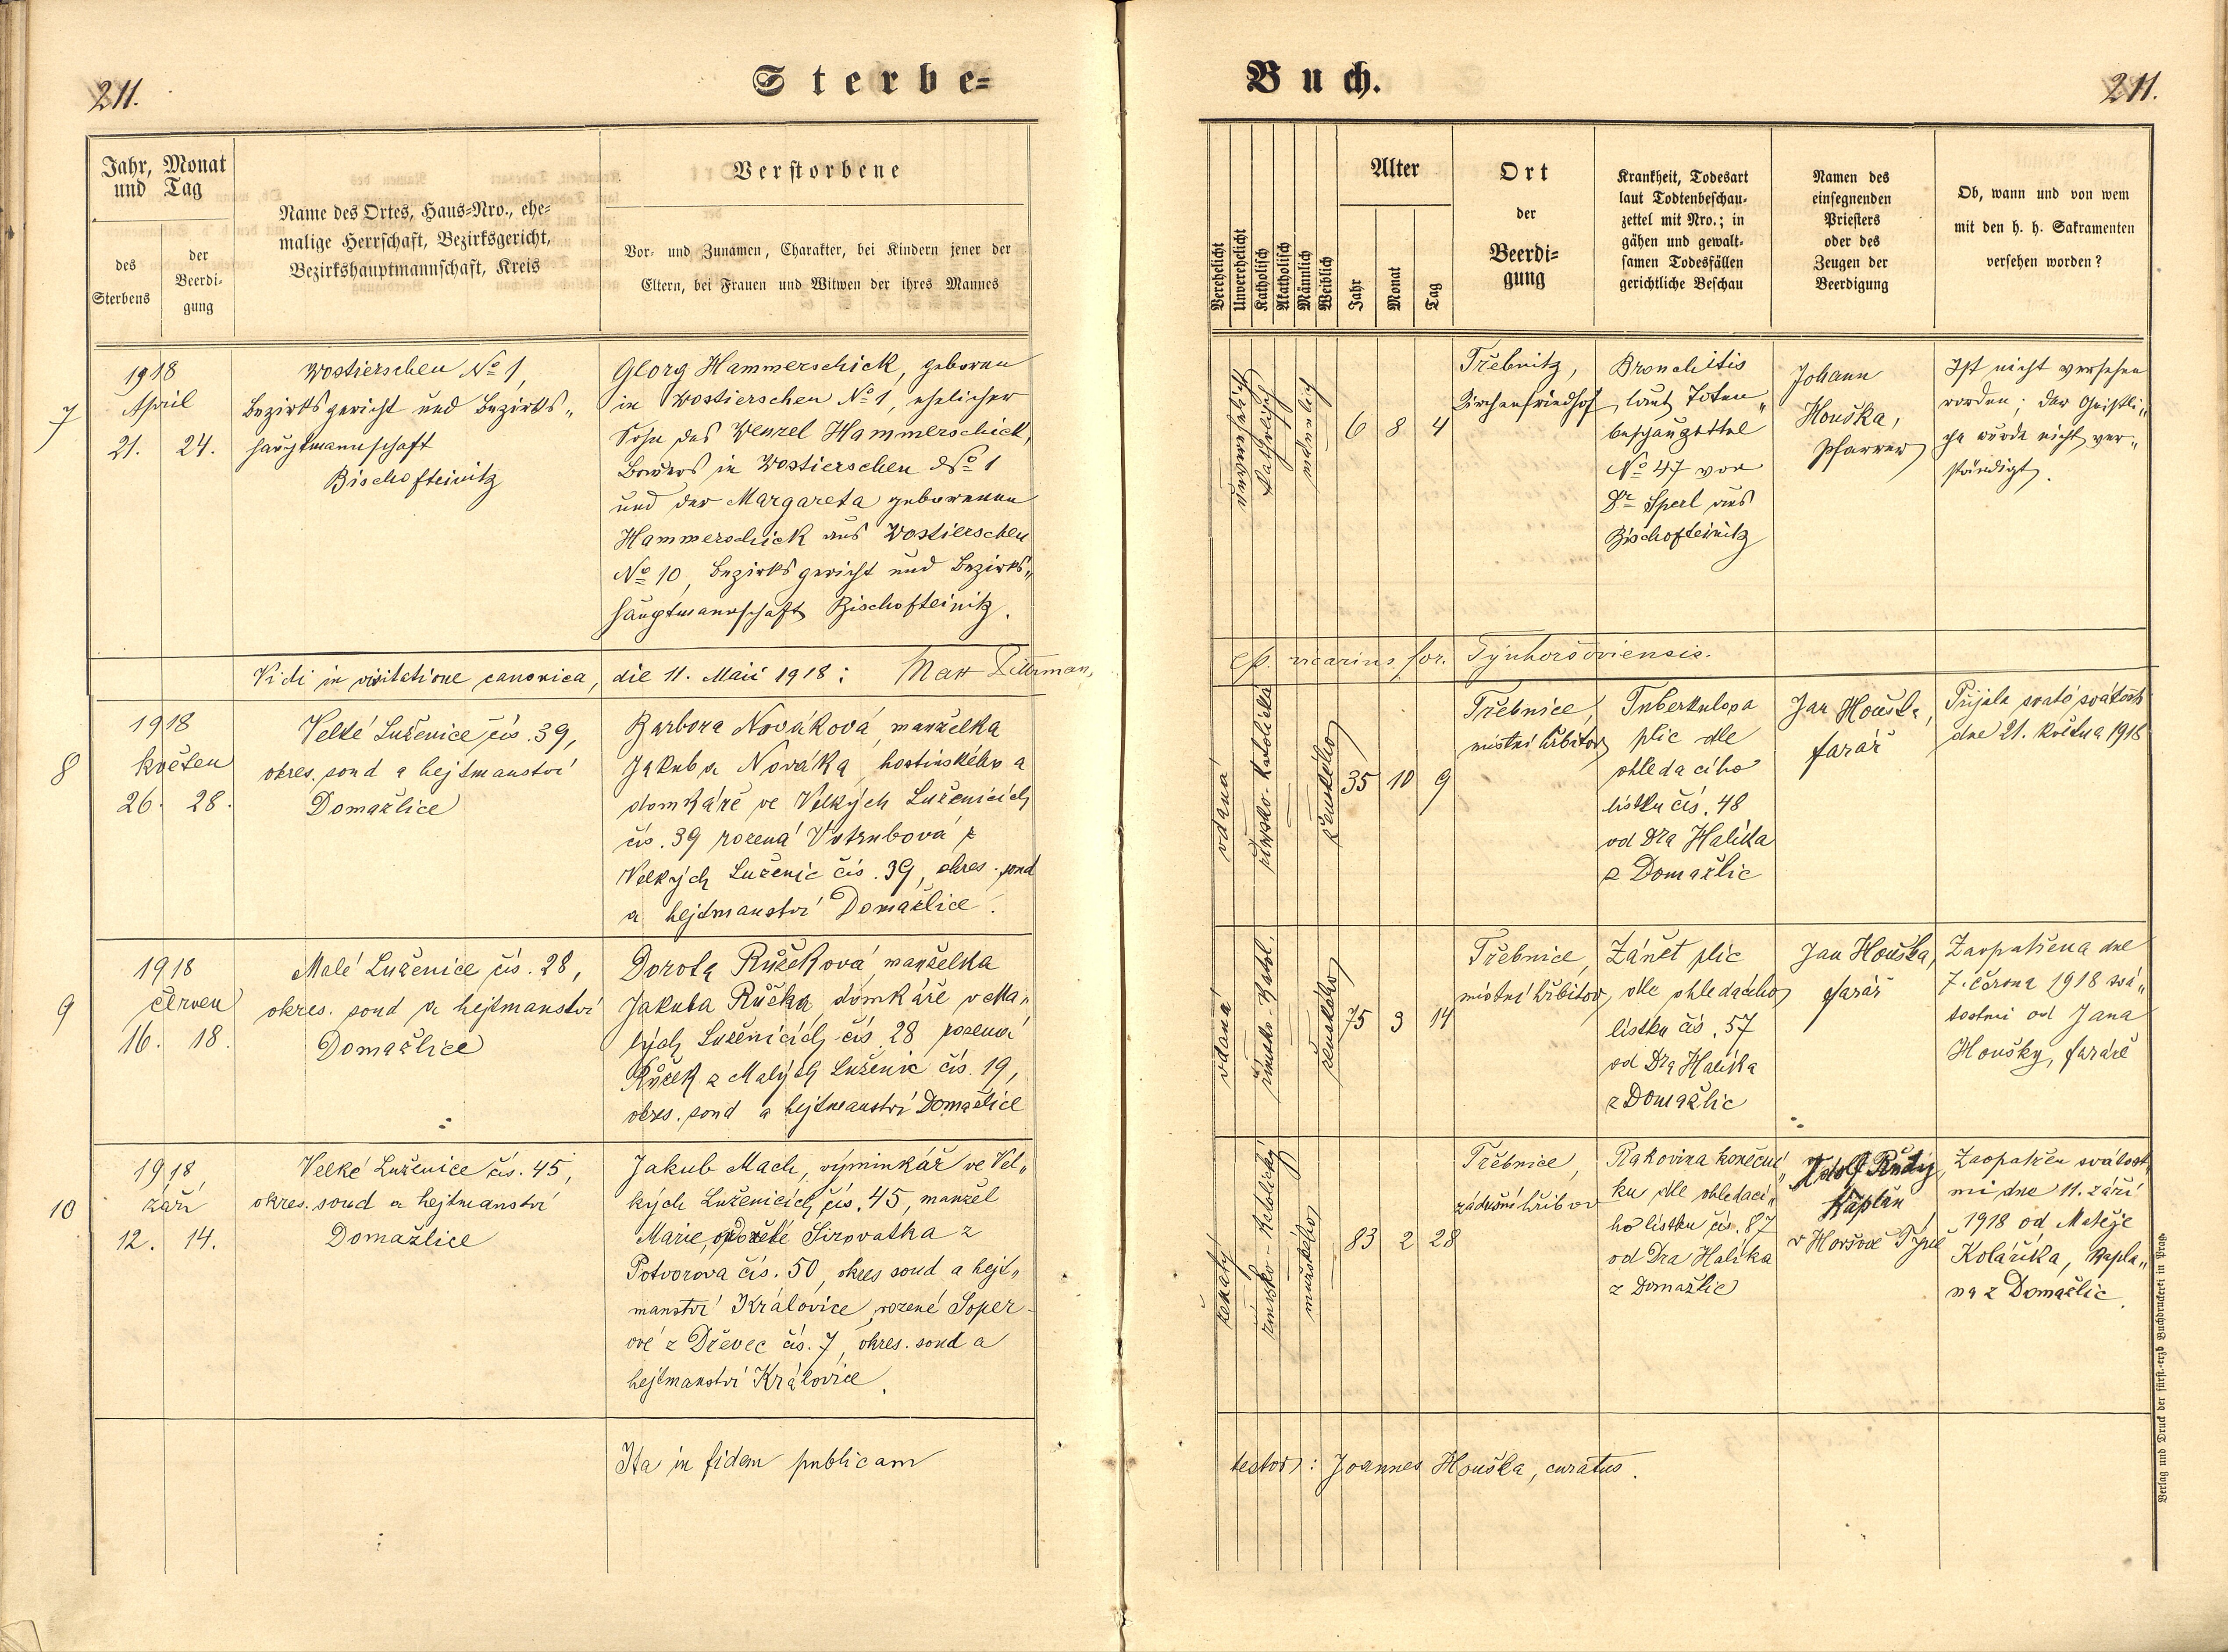 211.
Sterbe-
Buch.
211.
Jahr, Monat
und Tag
des
Sterbens
der
Beerdi-
gung
Name des Ortes, Haus-Nro., ehe-
malige Herrschaft, Bezirksgericht,
Bezirkshauptmannschaft, Kreis
Verstorbene
Vor- und Zunamen, Charakter, bei Kindern jener der
Eltern, bei Frauen und Witwen der ihres Mannes
Verehelicht
Unverehelicht
Katholisch
Akatholisch
Männlich
Weiblich
Alter
Jahr
Monat
Tag
Ort
der
Beerdi-
gung
Krankheit, Todesart
laut Todtenbeschau-
zettel mit Nro.; in
gähen und gewalt-
samen Todesfällen
gerichtliche Beschau
Namen des
einsegnenden
Priesters
oder des
Zeugen der
Beerdigung
Ob, wann und von wem
mit den h. h. Sakramenten
versehen worden?
7
1918
April
21. 24.
Wostierschen No 1,
Bezirksgericht und Bezirks„
hauptmannschaft
Bischofteinitz
Georg Hammerschick, geboren
in Wostierschen No 1, ehelicher
Sohn des Wenzel Hammerschick,
Bauers in Wostierschen No 1
und der Margareta geborenen
Hammerschick aus Wostierschen
No 10, Bezirksgericht und Bezirks„
hauptmannschaft Bischofteinitz.
unverehelicht
katholisch
männlich
6 8 4
Třebnitz,
Kirchenfriedhof
Bronchitis
laut Toten„
beschauzettel
No 47 von
Dr Sperl aus
Bischofteinitz
Johann
Houška,
Pfarrer
Ist nicht versehen
worden; der Geistli„
che wurde nicht ver„
ständigt.
Vidi in visitatione canonica, die 11. Maii 1918:
ep. vicarius for. Týnhoršoviensis.
8
1918
květen
26. 28.
Velké Luženice čís. 39,
okres. soud a hejtmanství
Domažlice
Barbora Nováková, manželka
Jakuba Nováka, hostinského a
domkáře ve Velkých Luženicích
čís. 39 rozená Votrubová z
Velkých Luženic čís. 39, okres. soud
a hejtmanství Domažlice.
vdaná
římsko-katolická
ženského
35 10 9
Třebnice,
místní hřbitov
Tuberkulosa
plic dle
ohledacího
lístku čís. 48
od Dra Halíka
z Domažlic
Jan Houška,
farář
Přijala svaté svátosti
dne 21. května 1918
9
1918
červen
16. 18.
Malé Luženice čís. 28,
okres. soud a hejtmanství
Domažlice
Dorota Růžková, manželka
Jakuba Růžka, domkáře v Ma„
lých Luženicích čís. 28 rozená
Růžek z Malých Luženic čís. 19,
okres. soud a hejtmanství Domažlice
vdaná
římsko-katol.
ženského
75 3 14
Třebnice,
místní hřbitov
Zánět plic
dle ohledacího
lístku čís. 57
od Dra Halíka
z Domažlic
Jan Houška,
farář
Zaopatřena dne
7. června 1918 svá„
tostmi od Jana
Houšky, faráře
10
1918
září
12. 14.
Velké Luženice čís. 45,
okres. soud a hejtmanství
Domažlice
Jakub Mach, výminkář ve Vel„
kých Luženicích čís. 45, manžel
Marie, Sirovatka z
Potvorova čís. 50, okres soud a hejt„
manství Královice, rozené Soper-
ové z Dřevec čís. 7, okres. soud a
hejtmanství Královice.
ženatý
římsko-katolický
mužského
83 2 28
Třebnice,
zádušní hřbitov
Rakovina koneční„
ku dle ohledací„
ho lístku čís. 87
od Dra Halíka
z Domažlic
Adolf Rudý,
kaplan
v Horšově Týně
Zaopatřen svátost„
mi dne 11. září
1918 od Matěje
Kolaříka, kapla„
na z Domažlic.
Ita in fidem publicam
testor: Joannes Houška, curatus.
Verlag und Druck der fürst.-erzb Buchdruckerei in Prag.